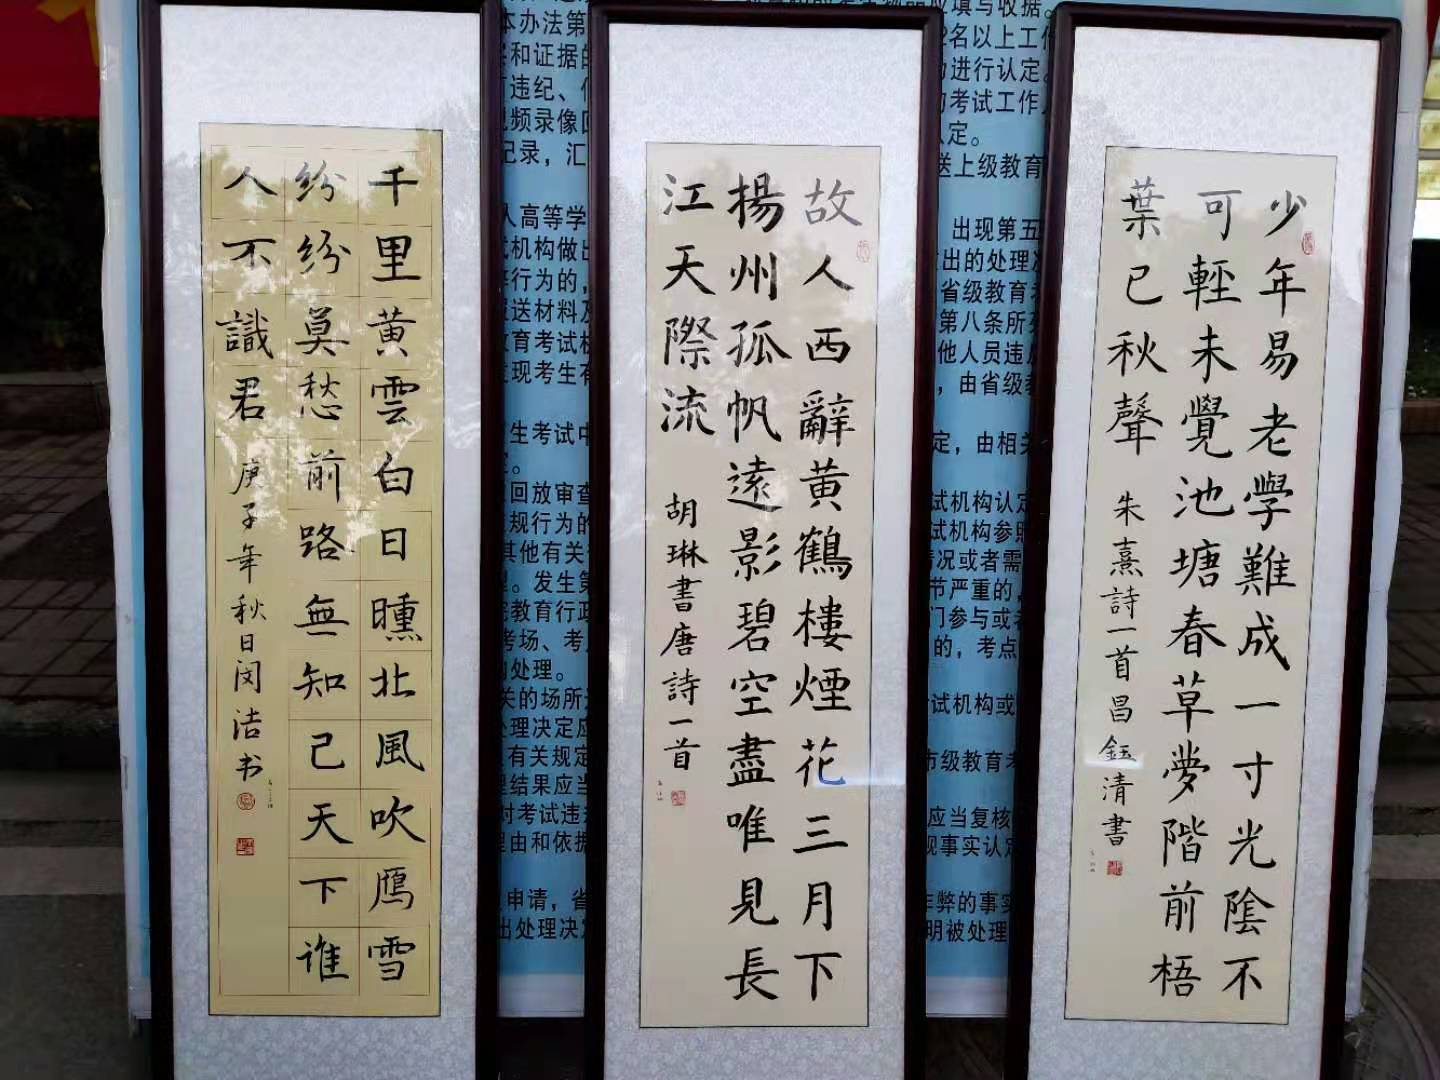 千里黄雲白日曛北風吹鴈雪
紛紛莫愁前路無知己天下谁
人不識君 庚子年秋日闵洁书
故人西辭黄鶴樓煙花三月下
揚州孤帆遠影碧空盡唯見長
江天際流 胡琳書唐詩一首
少年易老學難成一寸光陰不
可輕未覺池塘春草夢階前梧
葉已秋聲 朱熹詩一首昌鈺清書
本办法第
和证据的
违纪、
频录像回
记录，汇
人高等学
试机构做出
行为的，
送材料及
教育考试机
发现考生有
生考试中
回放审查
规行为的
其他有关
发生第
教育行政
考场、考
处理。
关的场所
处理决定应
有关规定
理结果应当
对考试违
理由和依据
申请，省
出处理决定
应填与收据。
2名以上工作
进行认定。
考试工作人
认定。
送上级教育
出现第五
出的处理决
省级教育考
第八条所列
他人员违反
，由省级教
定，由相关
试机构认定
试机构参照
情况或者需
节严重的，
门参与或者
的，考点
试机构或
市级教育考
应当复核
事实认定
作弊的事实
明被处理